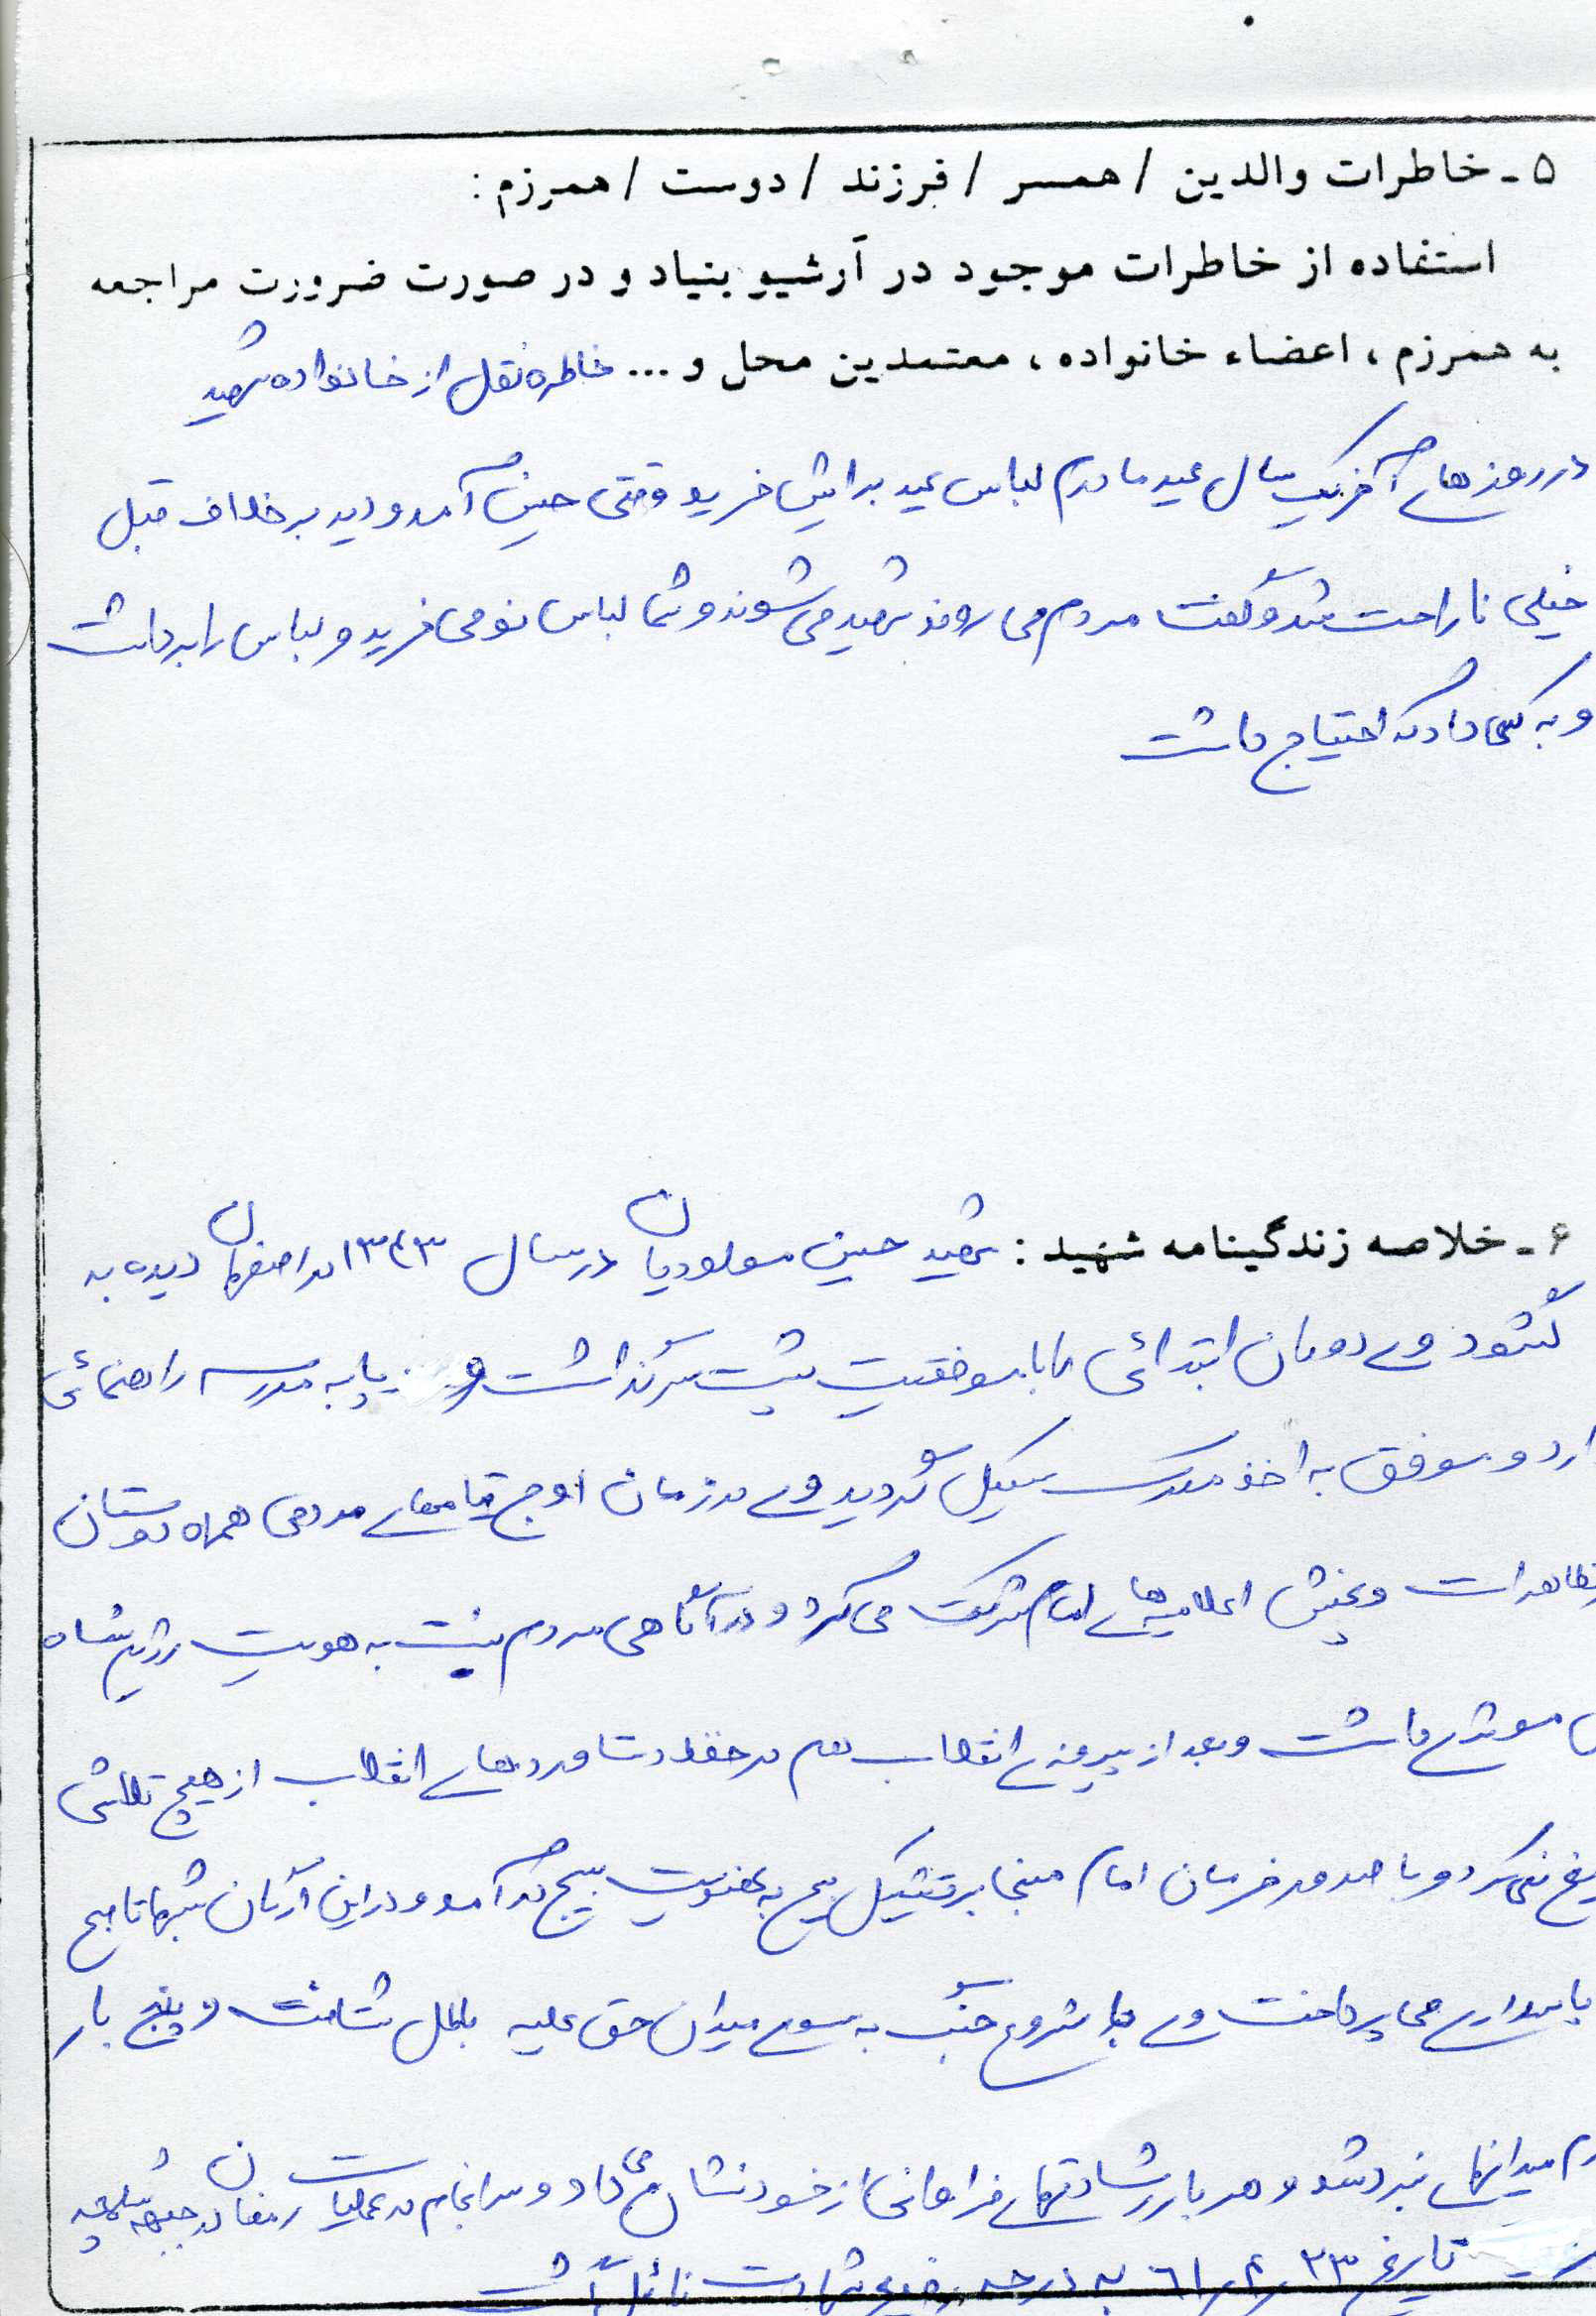 ۵ـ خاطرات والدین / همسر / فرزند / دوست / همرزم :
استفاده از خاطرات موجود در آرشیو بنیاد و در صورت ضرورت مراجعه
به همرزم ، اعضاء خانواده ، معتمدین محل و ... خاطره نقل از خانواده شهید
در روزهای آخر یک سال عید مادرم لباس عید برایش خرید وقتی حسین آمد و دید بر خلاف قبل
خیلی ناراحت شد و گفت مردم می روند شهید می شوند و شما لباس نو می خرید و لباس را برداشت
و به کسی داد که احتیاج داشت
۶ـ خلاصه زندگینامه شهید : شهید حسین مولودیان در سال ۱۳۴۳ در اصفهان دیده به
گشود وی دوران ابتدائی را با موفقیت پشت سر گذاشت و پا به مدرسه راهنمائی
ارد و موفق به اخذ مدرک سیکل گردید وی در زمان اوج قیامهای مردمی همراه دوستان
تظاهرات و پخش اعلامیه های امام شرکت می کرد و در آگاهی مردم نسبت به هویت رژیم شاه
موثری داشت و بعد از پیروزی انقلاب هم در حفظ دستاوردهای انقلاب از هیچ تلاشی
ریغ نمی کرد و با صدور فرمان امام مبنی بر تشکیل بسیج به عضویت بسیج در آمد و در این ارگان شبها تا صبح
پاسداری می پرداخت وی با شروع جنگ به سوی میدان حق علیه باطل شتافت و پنج بار
م میدانهای نبرد شد و هر بار رشادتهای فراوانی از خود نشان می داد و سرانجام در عملیات رمضان در جبهه شلمچه
تاریخ ۲۳ر۴ر۶۱ به درجه رفیع شهادت نائل گشت